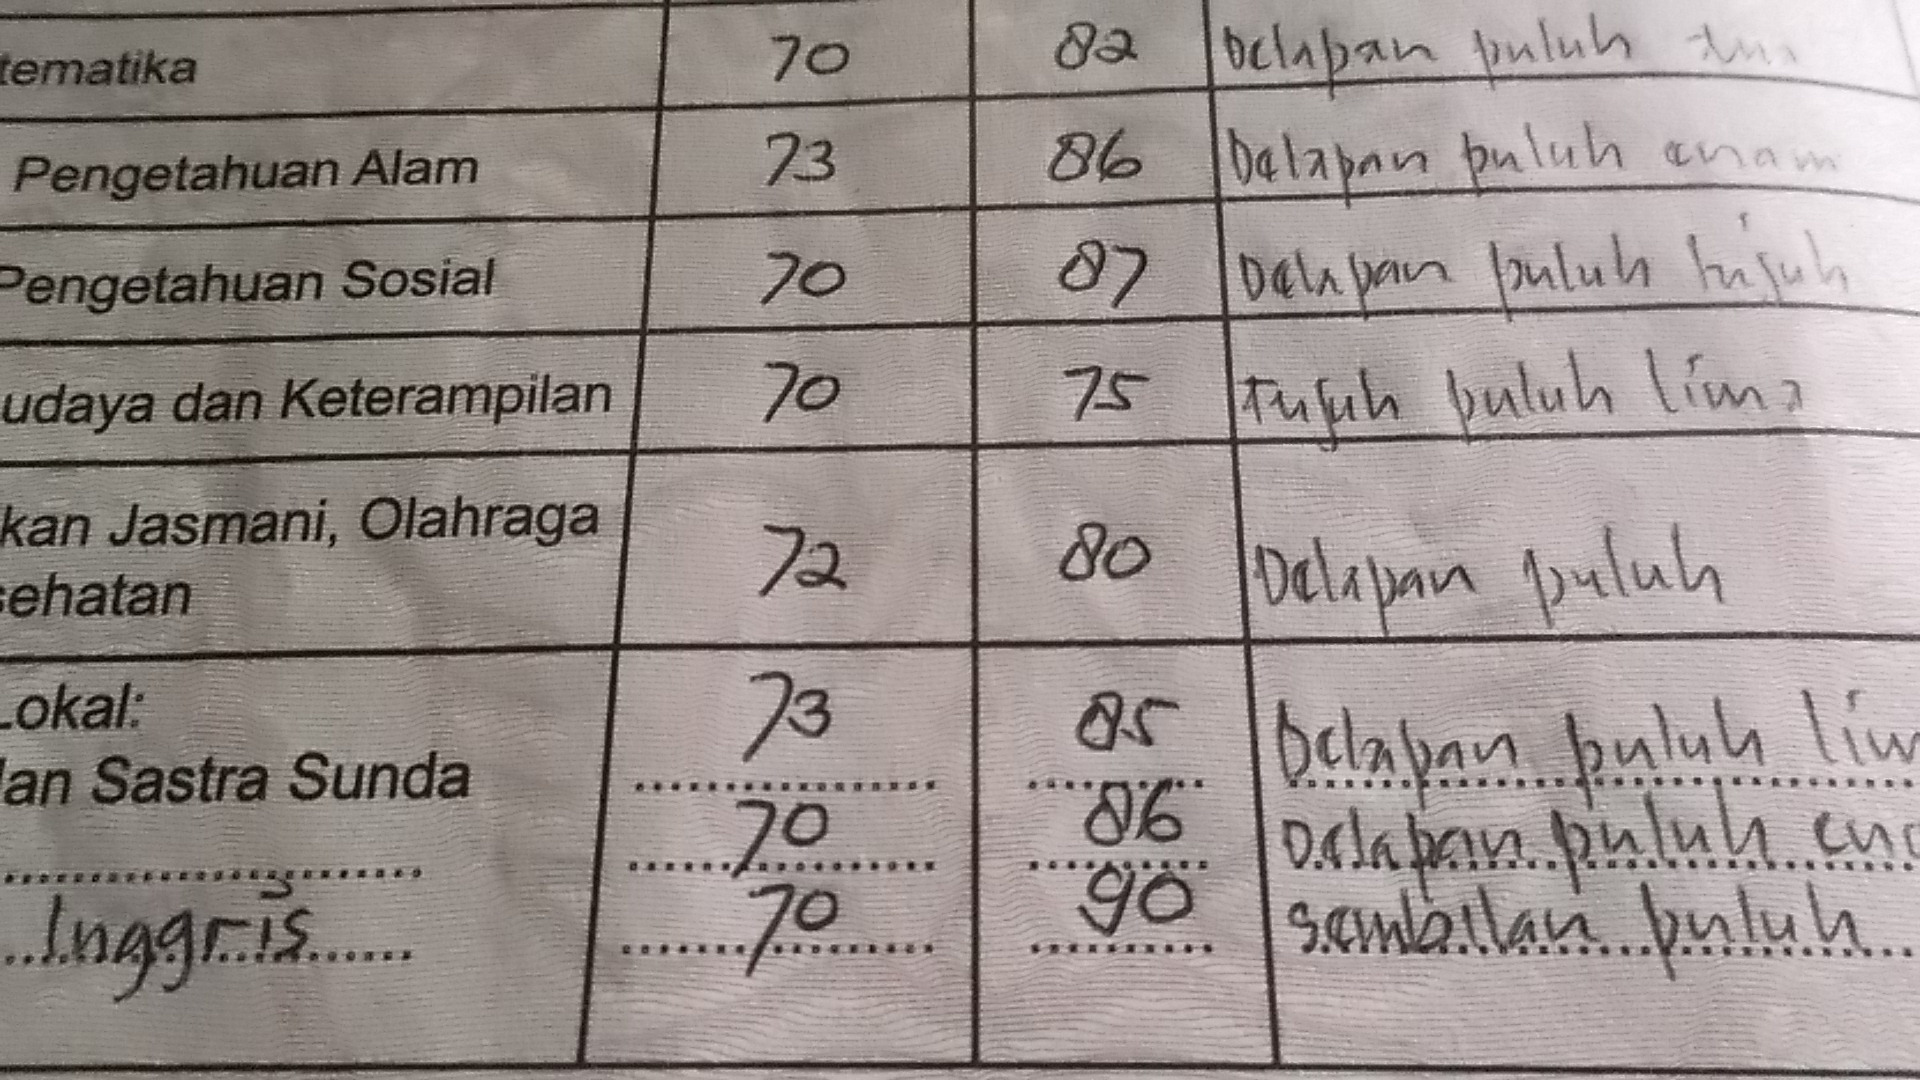 tematika 70 82 Delapan puluh dua
Pengetahuan Alam 73 86 Delapan puluh enam
Pengetahuan Sosial 70 87 Delapan puluh tujuh
udaya dan Keterampilan 70 75 Tujuh puluh lima
kan Jasmani, Olahraga
sehatan 72 80 Delapan puluh
Lokal: 73 85 Delapan puluh lim
dan Sastra Sunda
70 86 Delapan puluh ena
Inggris 70 90 Sembilan puluh